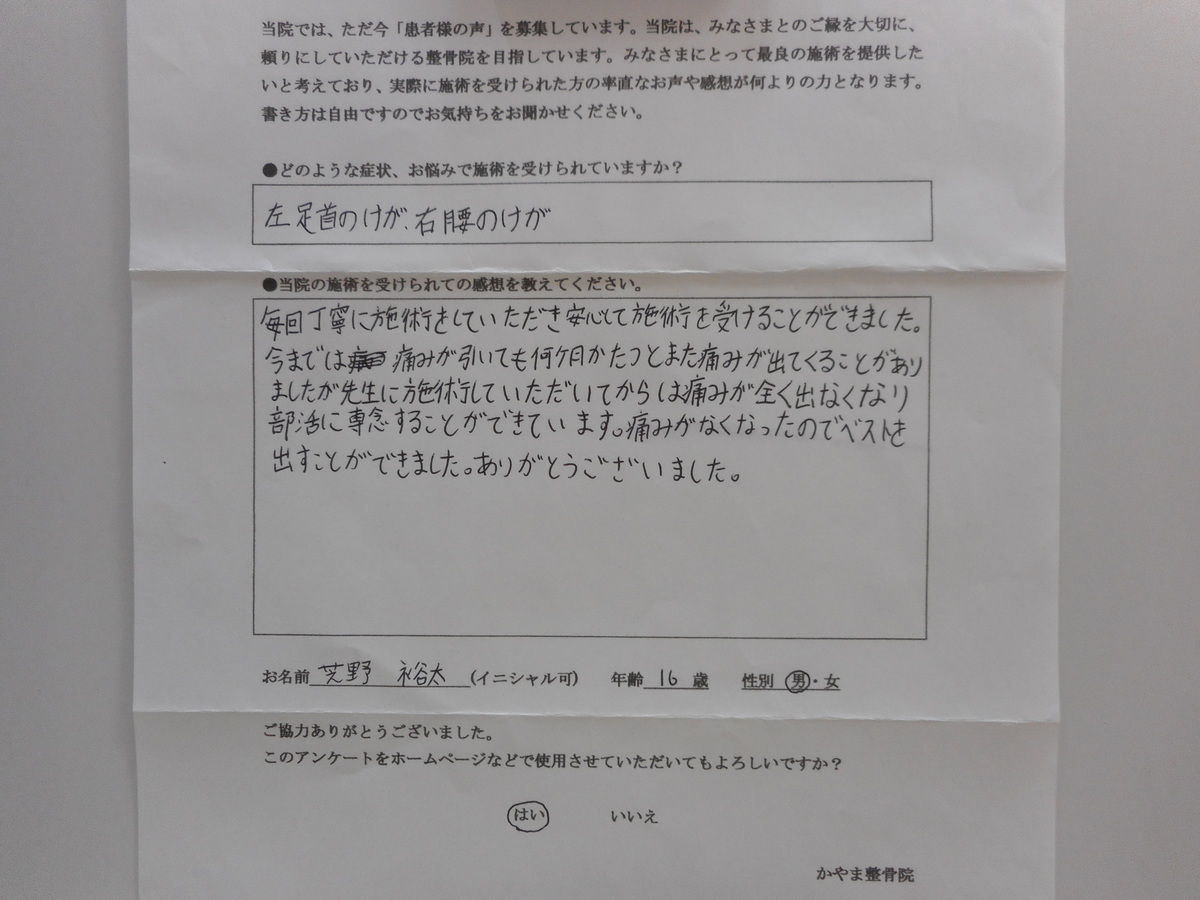 当院では、ただ今「患者様の声」を募集しています。当院は、みなさまとのご縁を大切に、
頼りにしていただける整骨院を目指しています。みなさまにとって最良の施術を提供した
いと考えており、実際に施術を受けられた方の率直なお声や感想が何よりの力となります。
書き方は自由ですのでお気持ちをお聞かせください。
●どのような症状、お悩みで施術を受けられていますか？
左足首のけが、右腰のけが
●当院の施術を受けられての感想を教えてください。
毎回丁寧に施術をしていただき安心して施術を受けることができました。
今までは痛みが引いても何ケ月かたつとまた痛みが出てくることがあり
ましたが先生に施術していただいてからは痛みが全く出なくなり
部活に専念することができています。痛みがなくなったのでベストを
出すことができました。ありがとうございました。
お名前 芝野 裕太 (イニシャル可) 年齢 16 歳 性別 男・女
ご協力ありがとうございました。
このアンケートをホームページなどで使用させていただいてもよろしいですか？
はい いいえ
かやま整骨院